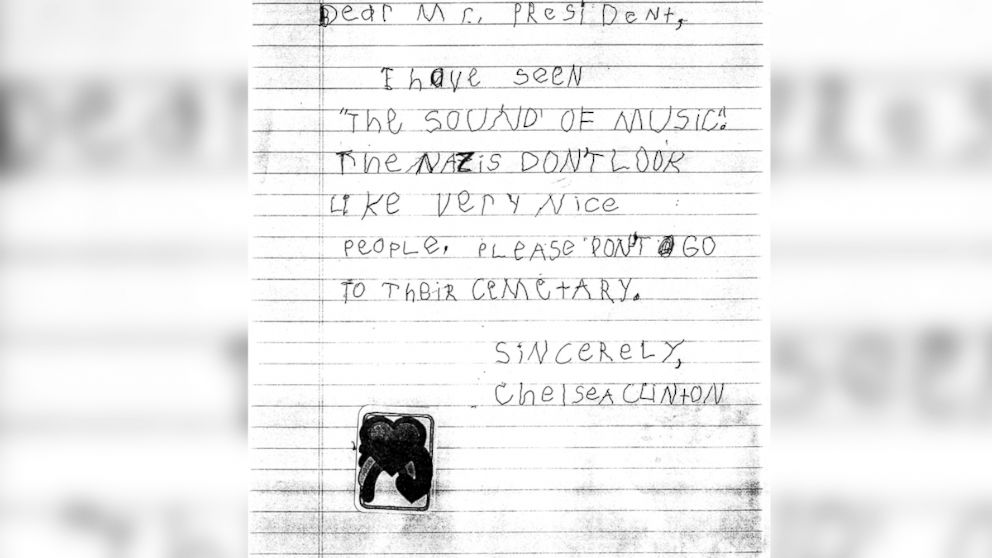 Dear Mr. PResiDent,
I have seen
"The SOUND OF MUSIC".
The NAZIS DON'T LOOK
LIKE VERY Nice
PEOPLE. PLEASE DON'T GO
TO THEIR CEMETARY.
SiNCERELY,
Chelsea CLINTON